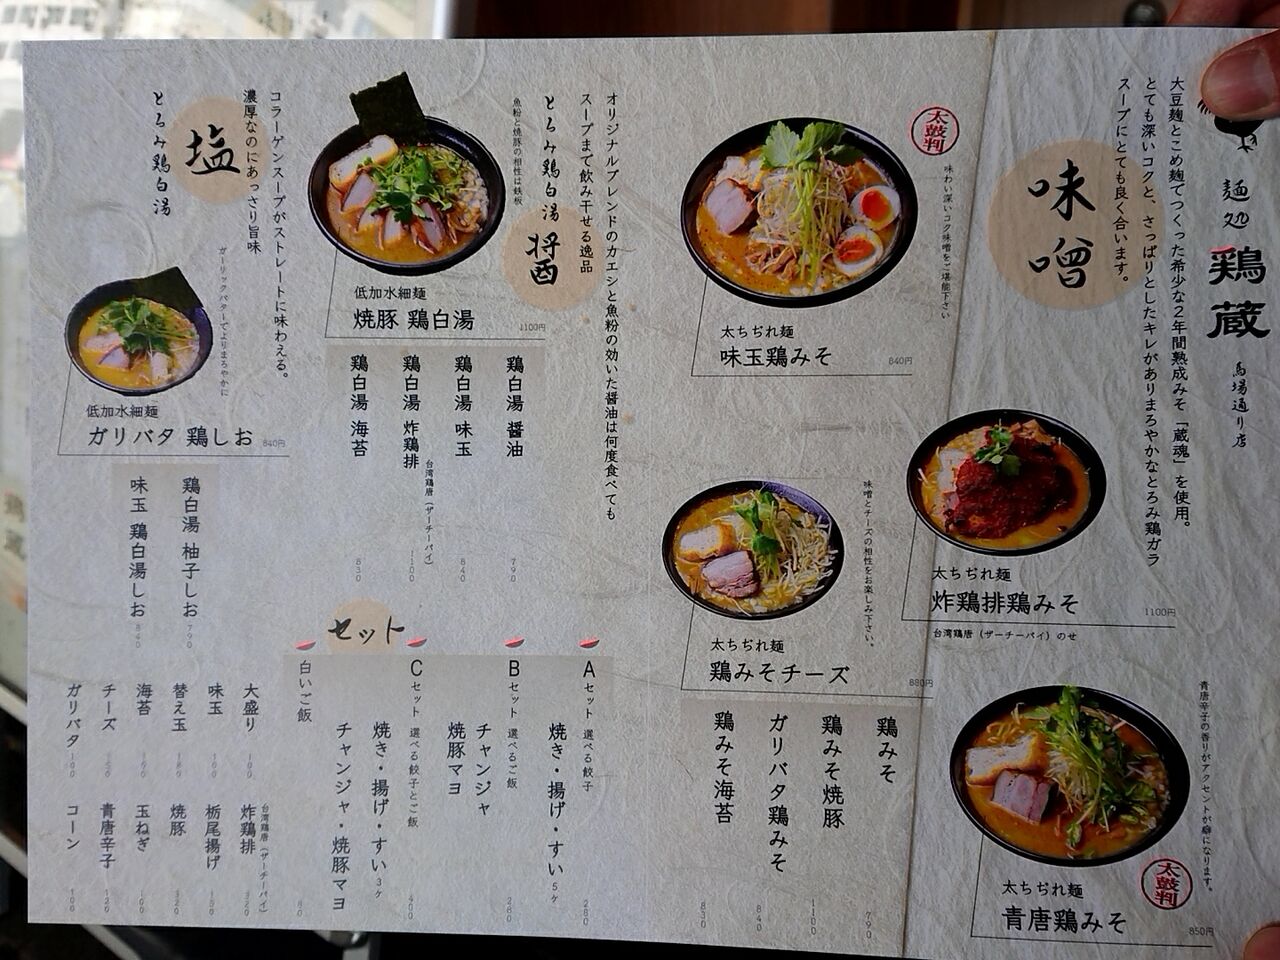 麺処 鶏蔵
馬場通り店
大豆麹とこめ麹でつくった希少な2年間熟成みそ「蔵魂」を使用。
とても深いコクと、さっぱりとしたキレがありまろやかなとろみ鶏ガラ
スープにとても良く合います。
味噌
太鼓判
味わい深いコク味噌をご堪能下さい
太ちぢれ麺
味玉鶏みそ
840円
太ちぢれ麺
炸鶏排鶏みそ
1100円
台湾鶏唐(ザーチーパイ)のせ
味噌とチーズの相性をお楽しみ下さい。
太ちぢれ麺
鶏みそチーズ
880円
青唐辛子の香りがアクセントが癖になります。
太鼓判
太ちぢれ麺
青唐鶏みそ
850円
鶏みそ 790
鶏みそ焼豚 1100
ガリバタ鶏みそ 840
鶏みそ海苔 830
オリジナルブレンドのカエシと魚粉の効いた醤油は何度食べても
スープまで飲み干せる逸品
とろみ鶏白湯 醤
魚粉と焼豚の相性は鉄板
低加水細麺
焼豚 鶏白湯
1100円
鶏白湯 醤油 790
鶏白湯 味玉 840
鶏白湯 炸鶏排 台湾鶏唐(ザーチーパイ) 1100
鶏白湯 海苔 830
コラーゲンスープがストレートに味わえる。
濃厚なのにあっさり旨味
塩
とろみ鶏白湯
ガーリックバターでよりまろやかに
低加水細麺
ガリバタ 鶏しお
840円
鶏白湯 柚子しお 790
味玉 鶏白湯しお 840
セット
Aセット 選べる餃子
焼き・揚げ・すい 5ヶ 280
Bセット 選べるご飯
チャンジャ
焼豚マヨ 280
Cセット 選べる餃子とご飯
焼き・揚げ・すい 3ヶ
チャンジャ・焼豚マヨ 400
白いご飯 80
大盛り 100
味玉 100
替え玉
海苔
チーズ
ガリバタ 100
台湾鶏唐(ザーチーパイ)
炸鶏排 320
栃尾揚げ 150
焼豚 320
玉ねぎ 100
青唐辛子 120
コーン 100